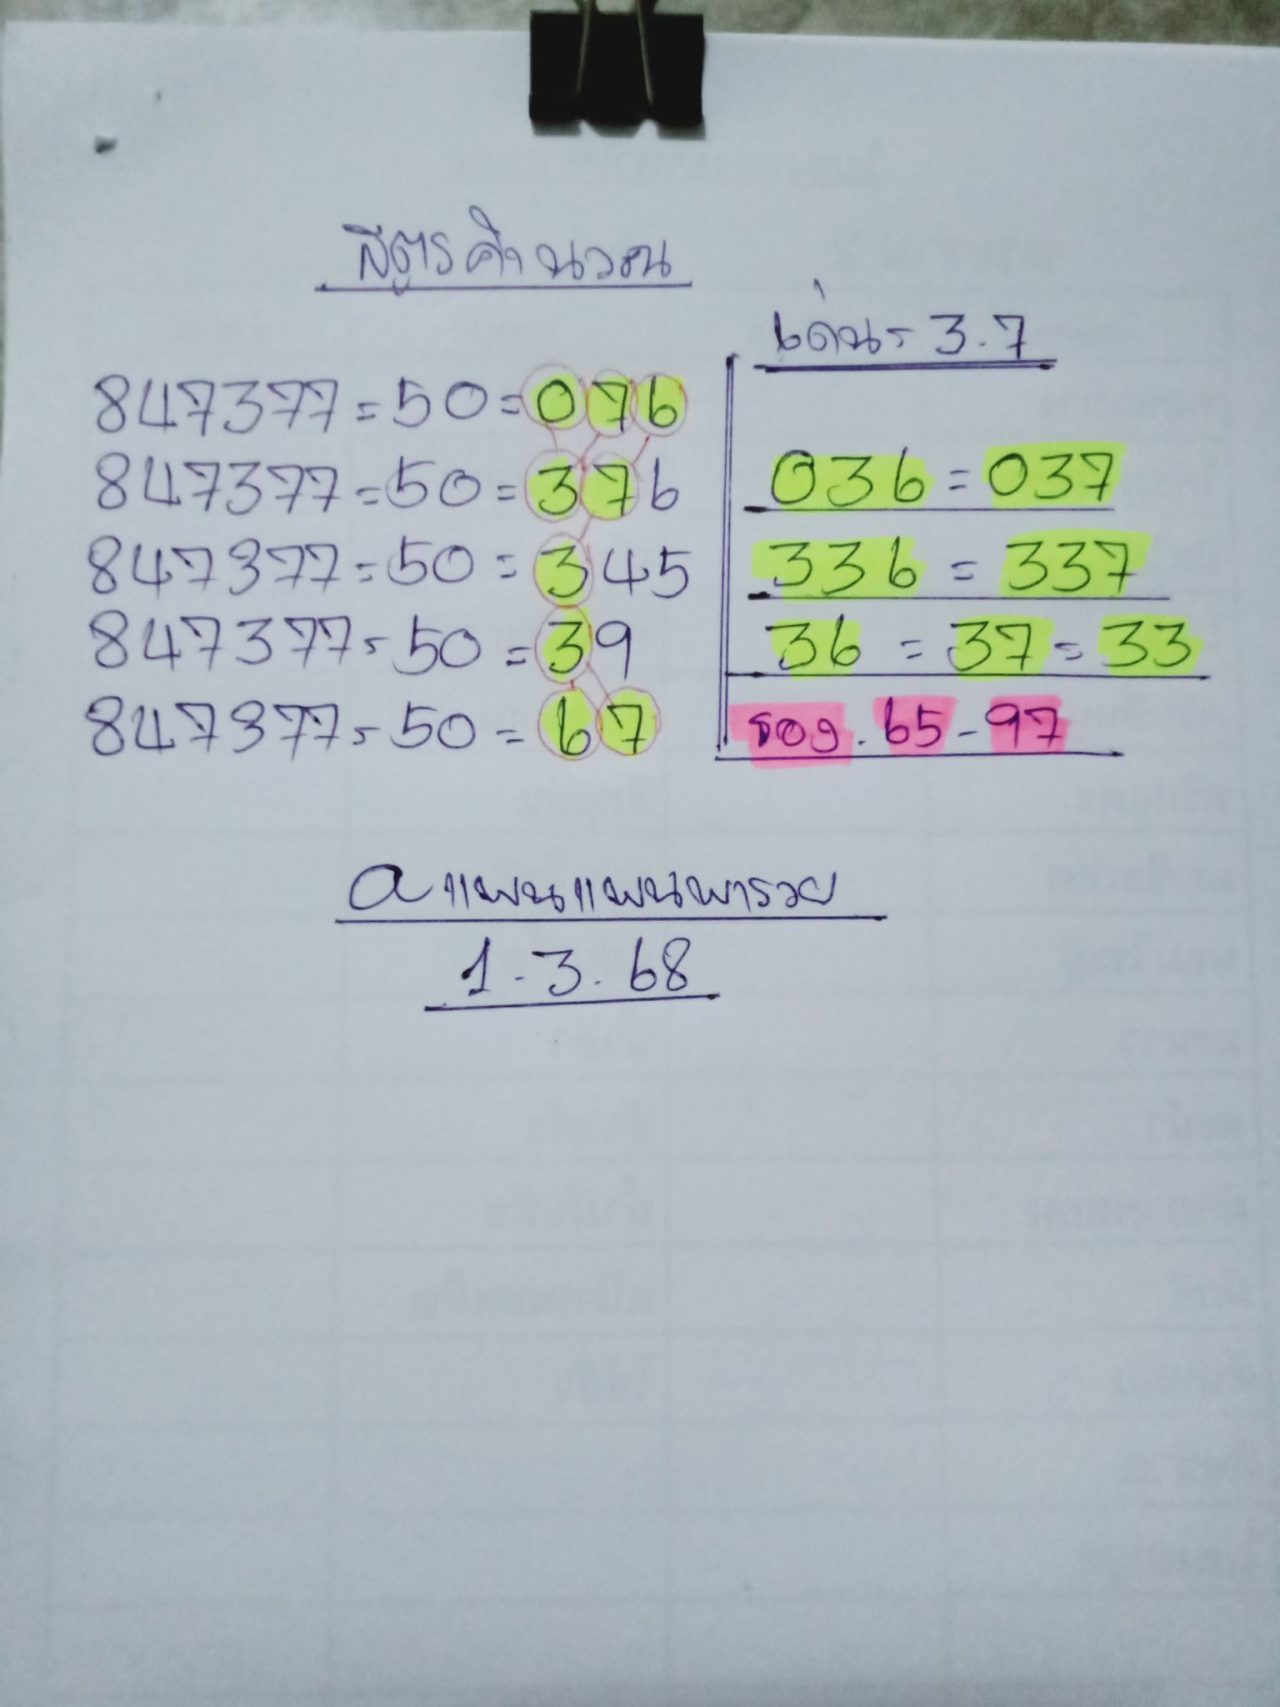 สูตรคำนวณ
เด่น = 3.7
847377 = 50 = 076
847377 = 50 = 376
847377 = 50 = 345
847377 = 50 = 39
847377 = 50 = 67
036 = 037
336 = 337
36 = 37 = 33
รอง. 65 - 97
a แพนแพนพารวย
1.3.68